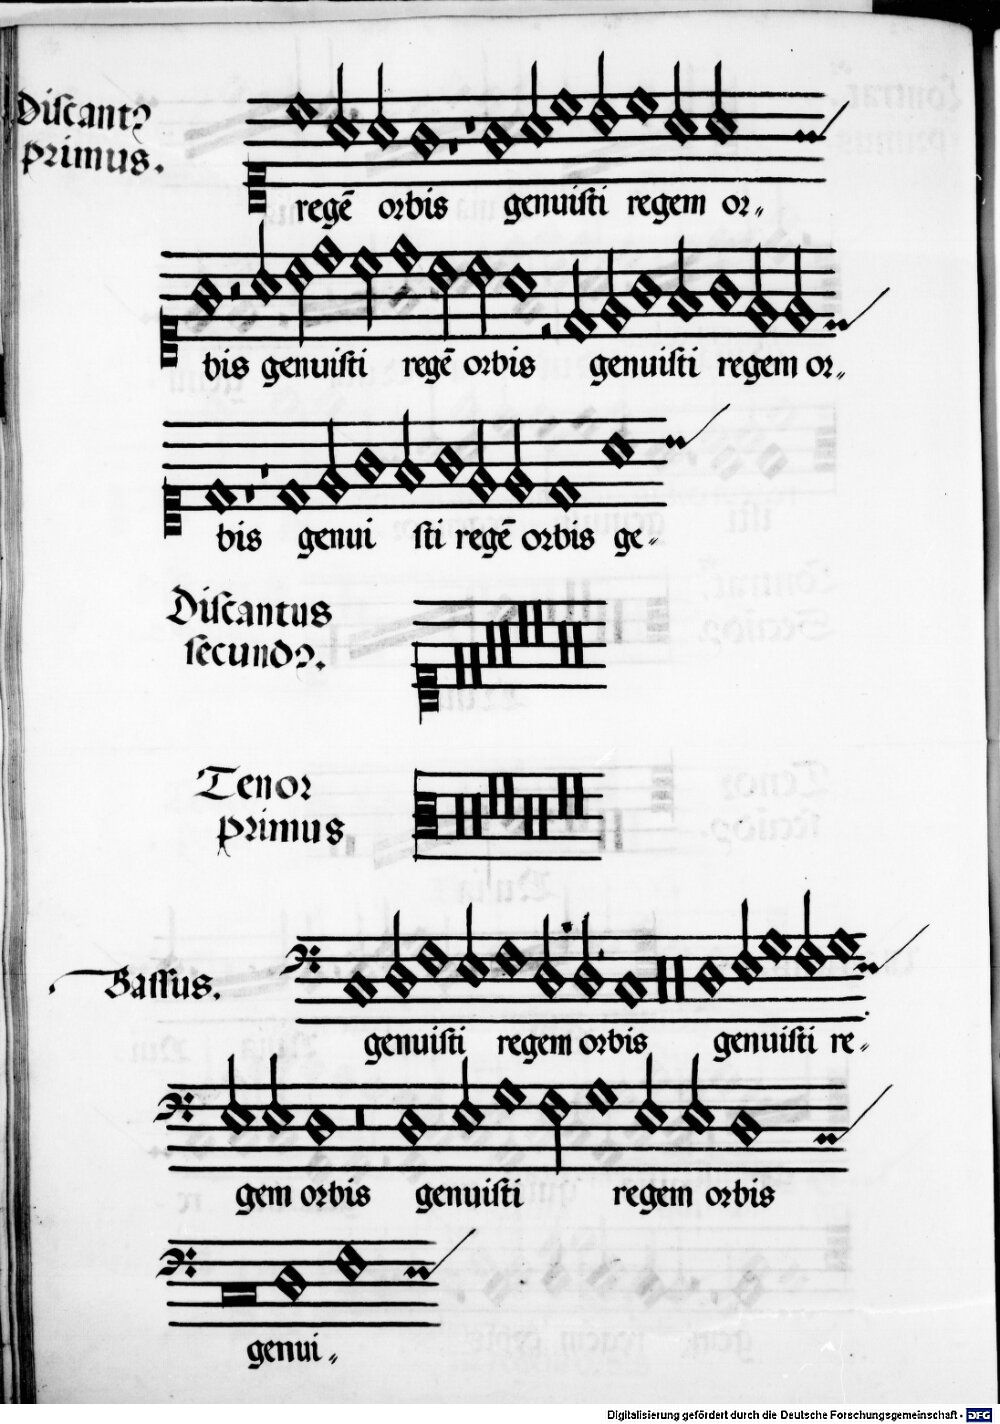 Discantꝰ
primus.
regē orbis genuisti regem or-
bis genuisti regē orbis genuisti regem or-
bis genui sti regē orbis ge-
Discantus
secundꝰ.
Tenor
primus
Bassus.
genuisti regem orbis genuisti re-
gem orbis genuisti regem orbis
genui-
Digitalisierung gefördert durch die Deutsche Forschungsgemeinschaft - DFG